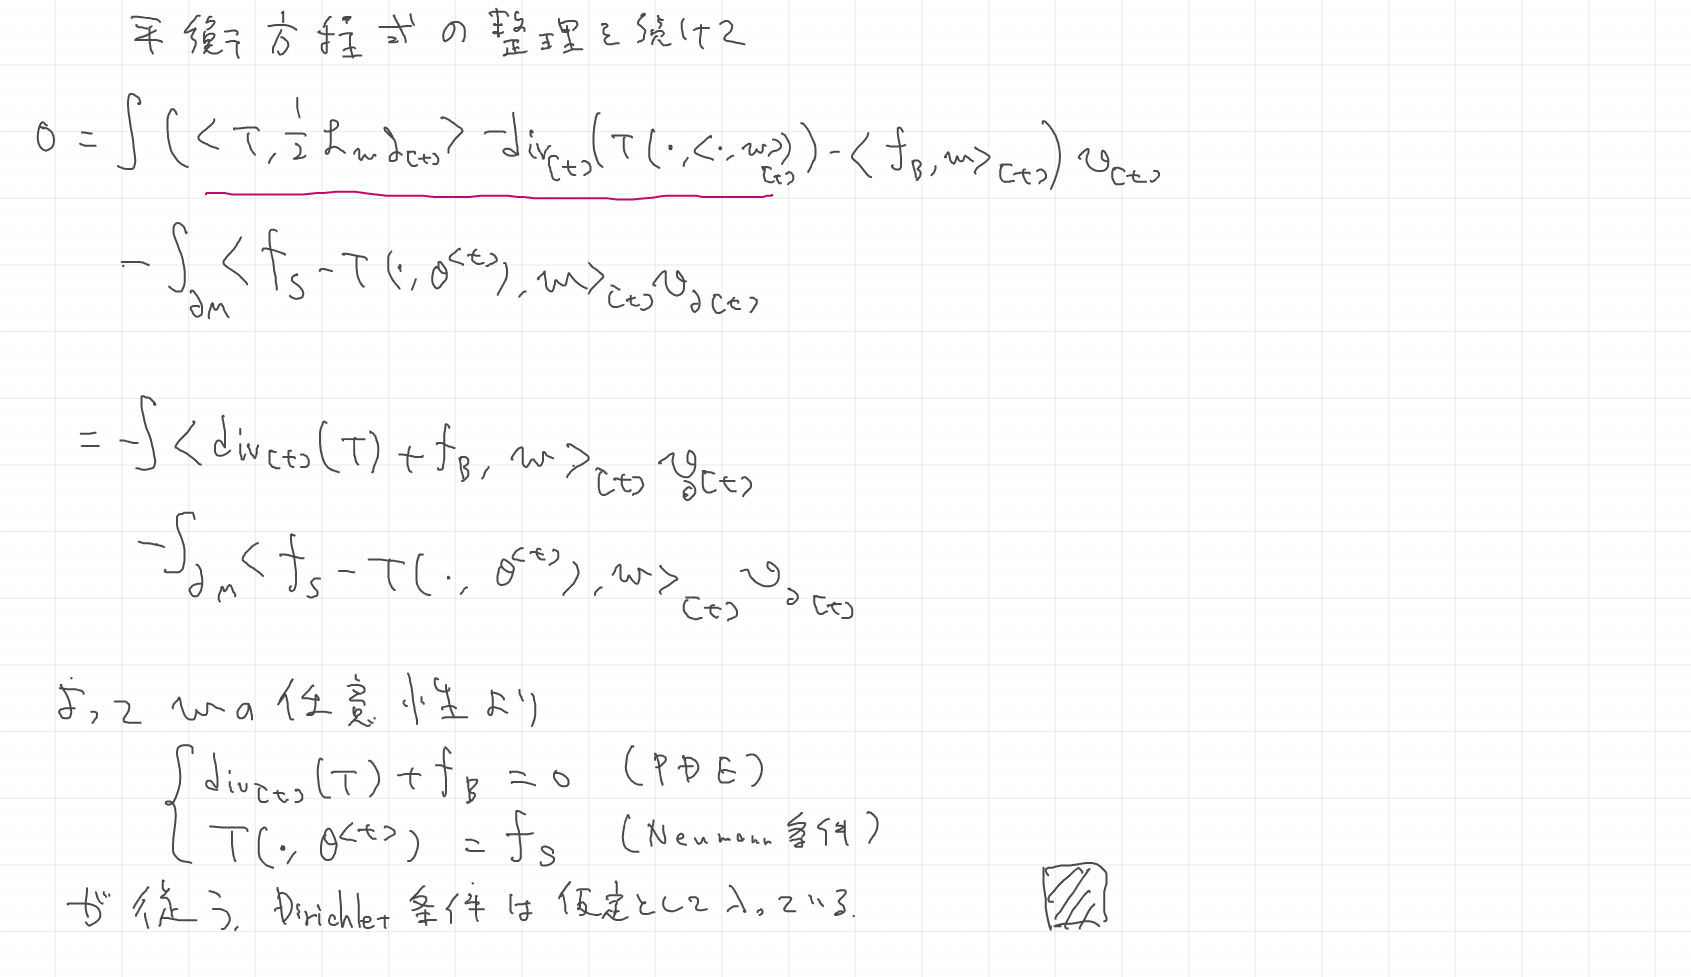 平衡方程式の整理を続けて
0 = ∫ (<T, 1/2 ℒ_w g_[t]> - div_[t](T(·,<·,w>_[t])) - <f_B, w>_[t]) υ_[t]
- ∫_∂M <f_S - T(·, θ^<t>), w>_[t] υ_∂[t]
= -∫ <div_[t](T) + f_B, w>_[t] υ_∂[t]
-∫_∂M <f_S - T(·, θ^<t>), w>_[t] υ_∂[t]
よって w の 任意性より
{ div_[t](T) + f_B = 0 (PDE)
T(·, θ^<t>) = f_S (Neumann条件)
が従う. Dirichlet条件は仮定として入っている.